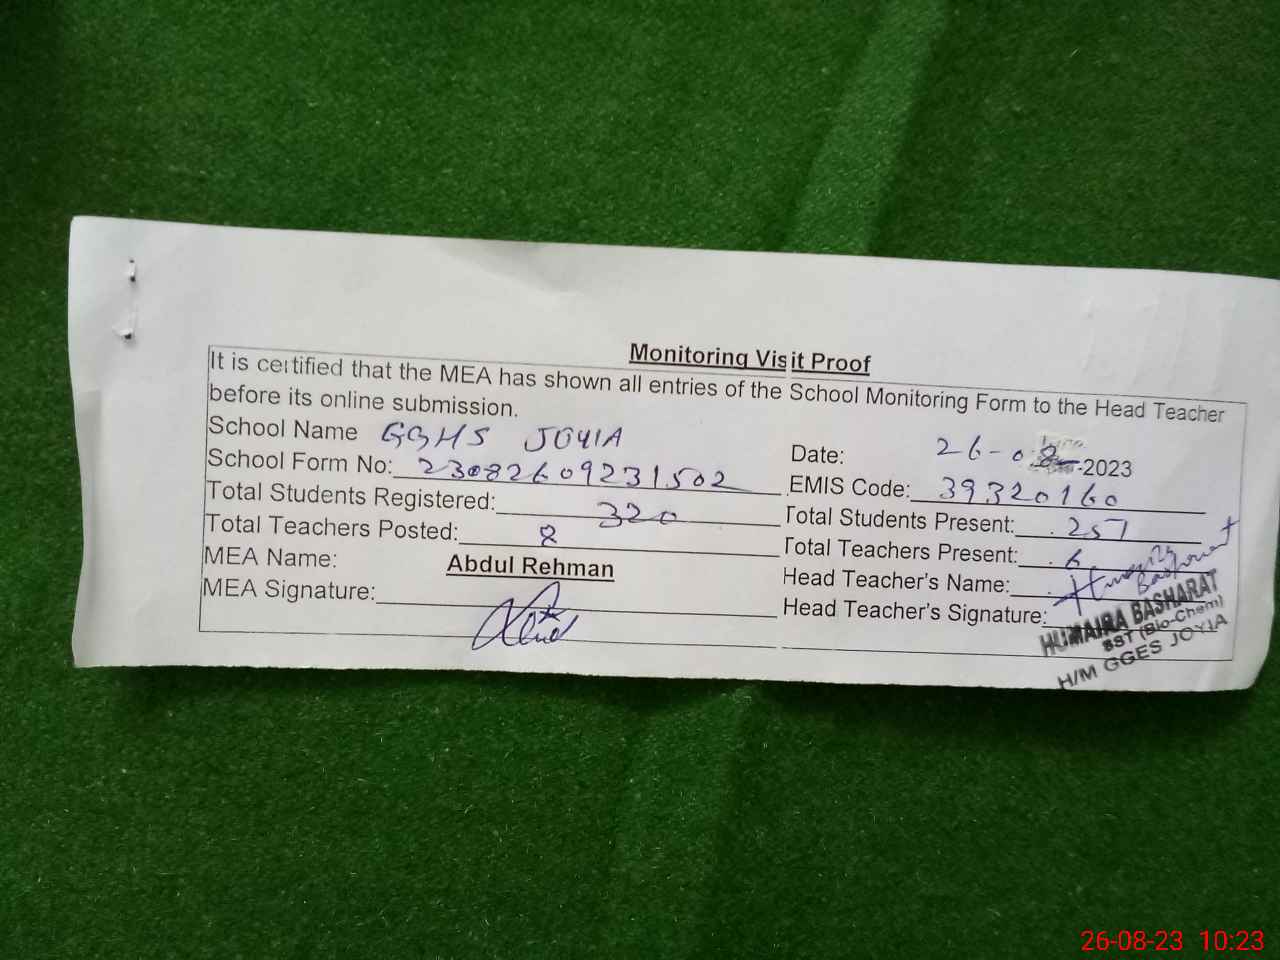 Monitoring Visit Proof
It is certified that the MEA has shown all entries of the School Monitoring Form to the Head Teacher
before its online submission.
School Name GGHS JOYIA
Date: 26-08-2023
School Form No: 23082609231502
EMIS Code: 39320160
Total Students Registered: 320
Total Students Present: 257
Total Teachers Posted: 8
Total Teachers Present: 6
MEA Name: Abdul Rehman
Head Teacher's Name: Humaira Basharat
MEA Signature:
Head Teacher's Signature:
HUMAIRA BASHARAT
SST (Bio-Chem)
H/M GGES JOYIA
26-08-23 10:23